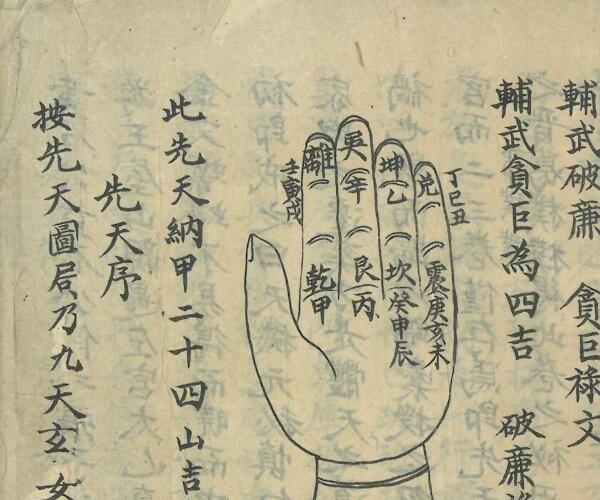 輔武破廉　貪巨祿文
輔武貪巨為四吉　破廉
丁巳丑
兌
震庚亥未
坤乙
坎癸申辰
巽辛
艮丙
離
壬寅戌
乾甲
此先天納甲二十四山吉
先天序
按先天圖局乃九天玄女